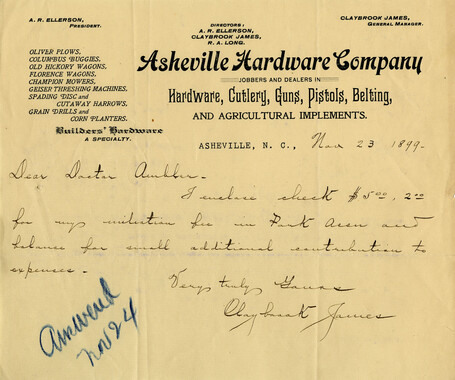 A. R. ELLERSON,
PRESIDENT.
DIRECTORS:
A. R. ELLERSON,
CLAYBROOK JAMES,
R. A. LONG.
CLAYBROOK JAMES,
GENERAL MANAGER.
OLIVER PLOWS,
COLUMBUS BUGGIES,
OLD HICKORY WAGONS,
FLORENCE WAGONS,
CHAMPION MOWERS,
GEISER THRESHING MACHINES,
SPADING DISC AND
CUTAWAY HARROWS,
GRAIN DRILLS AND
CORN PLANTERS.
Builders' Hardware
A SPECIALTY.
Asheville Hardware Company
JOBBERS AND DEALERS IN
Hardware, Cutlery, Guns, Pistols, Belting,
AND AGRICULTURAL IMPLEMENTS.
ASHEVILLE, N. C., Nov 23 1899-
Dear Doctor Ambler-
I enclose check $5.00, 2.00
for my initiation fee in Park Assn and
balance for small additional contribution to
expenses-
Very truly Yours
Claybrook James
Answerd
Nov 24